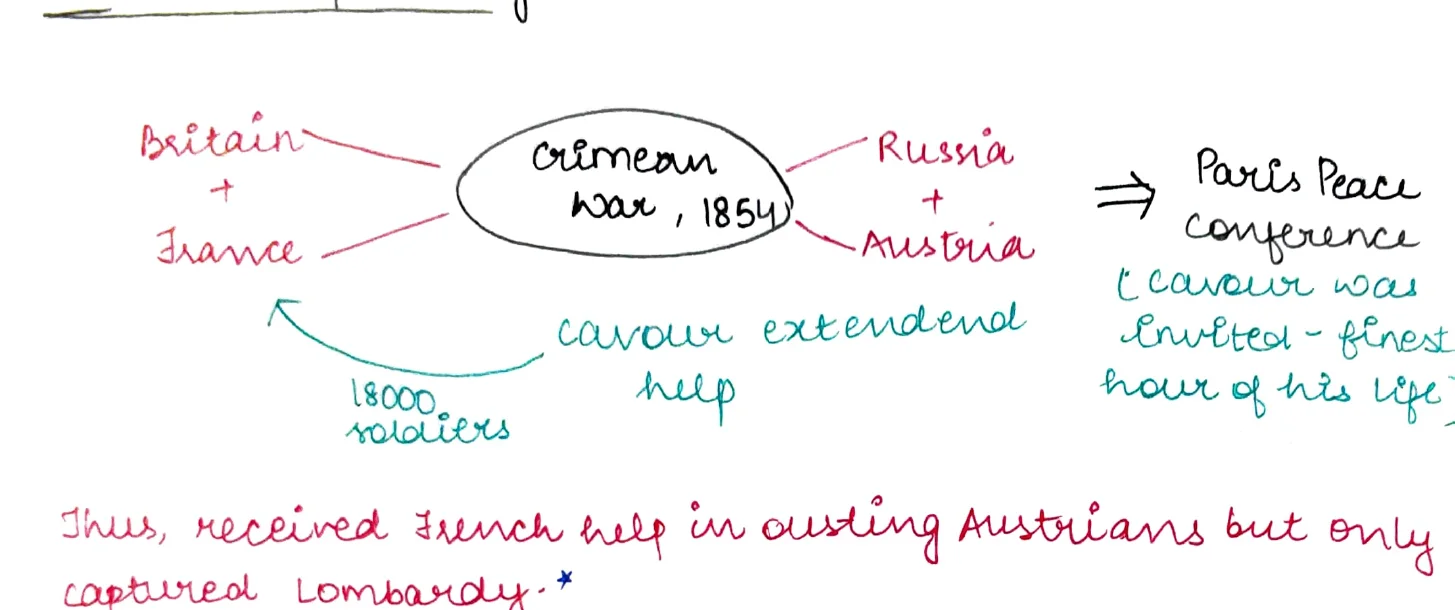 Britain
+
France
Crimean
War, 1854
Russia
+
Austria
⇒ Paris Peace
conference
(Cavour was
invited - finest
hour of his life)
Cavour extendend
help
18000
soldiers
Thus, received French help in ousting Austrians but only
captured Lombardy.*